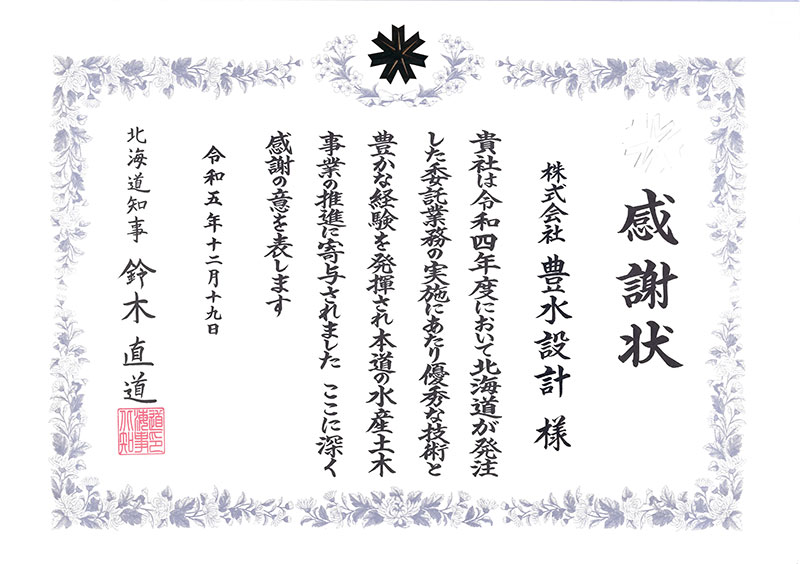 感謝状
株式会社 豊水設計 様
貴社は令和四年度において北海道が発注
した委託業務の実施にあたり優秀な技術と
豊かな経験を発揮され本道の水産土木
事業の推進に寄与されました ここに深く
感謝の意を表します
令和五年十二月十九日
北海道知事 鈴木直道